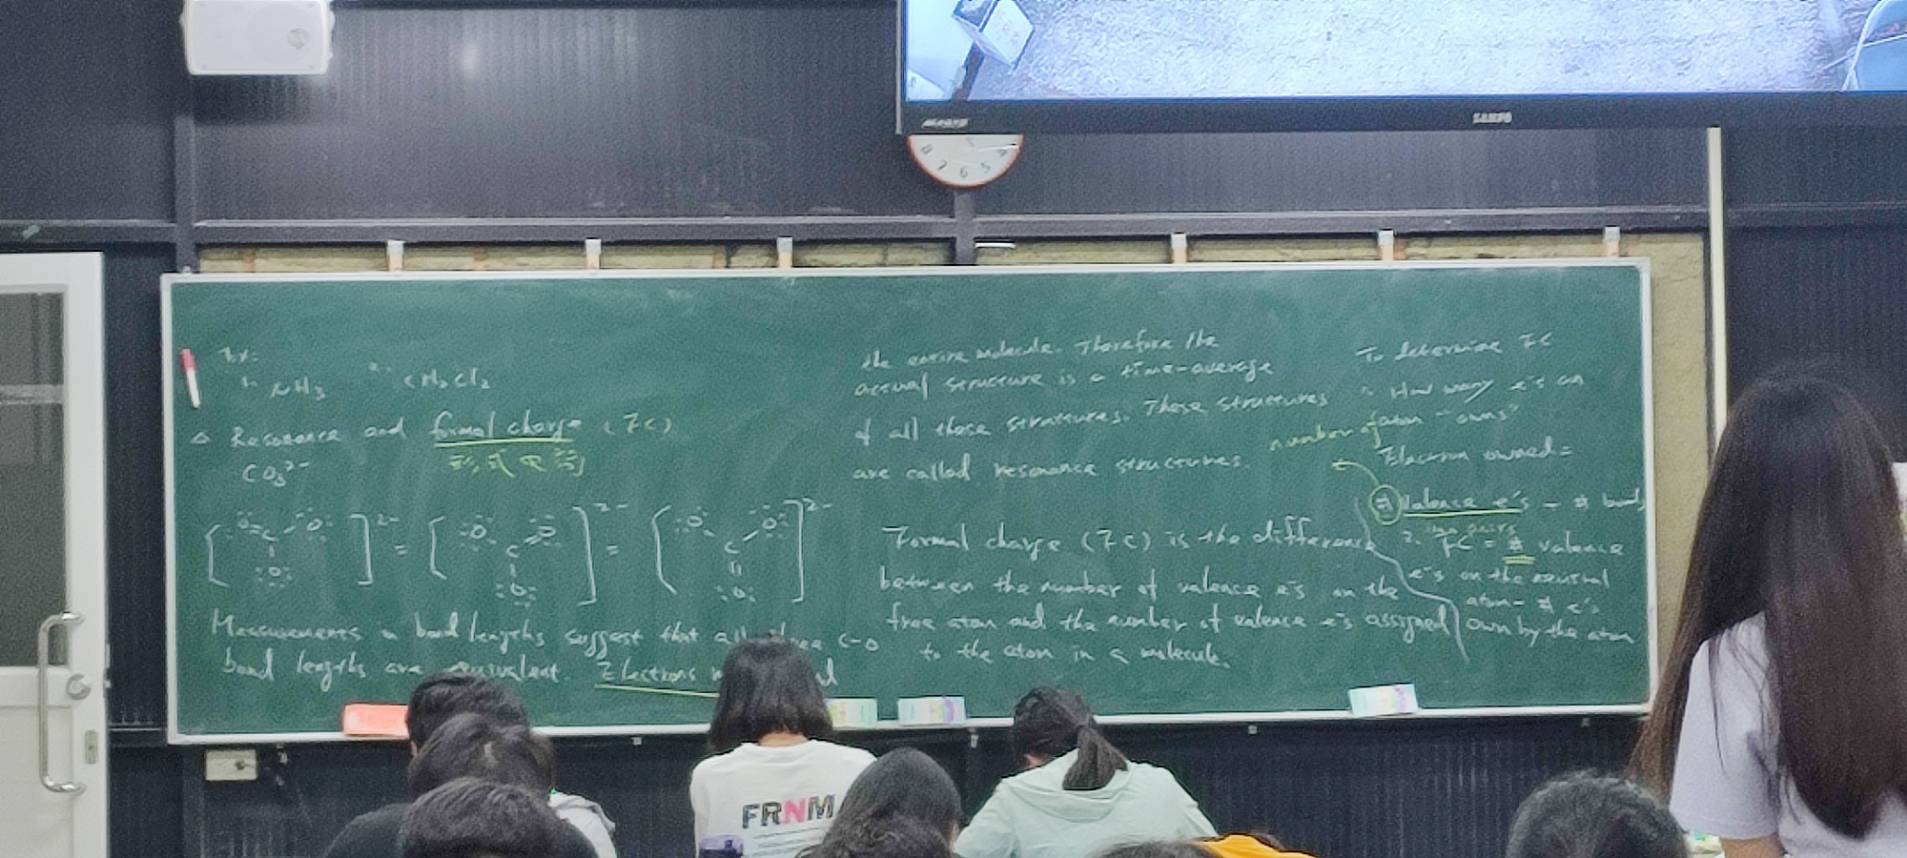 SANPO
8 7 6 5 4
Ex:
1. NH3 2. CH2Cl2
△ Resonance and formal charge (FC)
形式電荷
CO3 2-
[ O = C - O O ] 2- = [ O C = O O ] 2- = [ O C O O ] 2-
Measurements bond lengths suggest that C-O
bond lengths are equivalent. Electrons
the entire molecule. Therefore the
actual structure is a time-average
of all these structures. These structures
are called resonance structures.
Formal charge (FC) is the difference
between the number of valence e's on the
free atom and the number of valence e's assigned
to the atom in a molecule.
To determine FC
1. How many e's an
atom "owns"
number of
Electron owned =
# valence e's - # bonds
2. FC = # valence
e's on the neutral
atom - # e's
own by the atom
FRNM